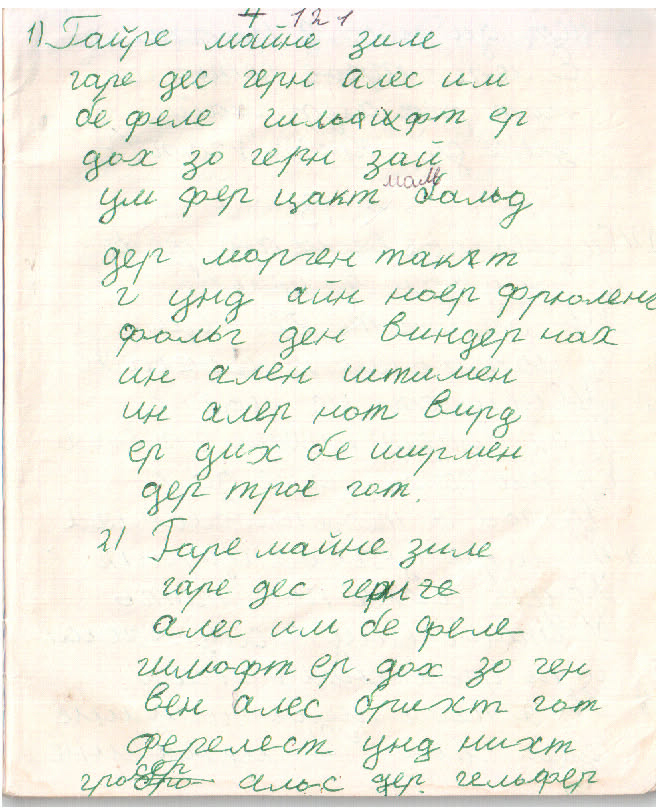 # 121
1) Гайре майне зиле
гаре дес герн алес им
бе феле гильхфт ер
дох зо герн зай
ум фер цакт мам бальд
дер морген такт
г унд айн ноер фрюленг
фольг ден виндер нах
ин ален штимен
ин алер нот вирд
ер дих бе ширмен
дер трое гот.
2) Гаре майне зиле
гаре дес
алес им бе феле
гилюфт ер дох зо ген
вен алес брихт гот
ферелест унд нихт
гросер альс дер гельфер